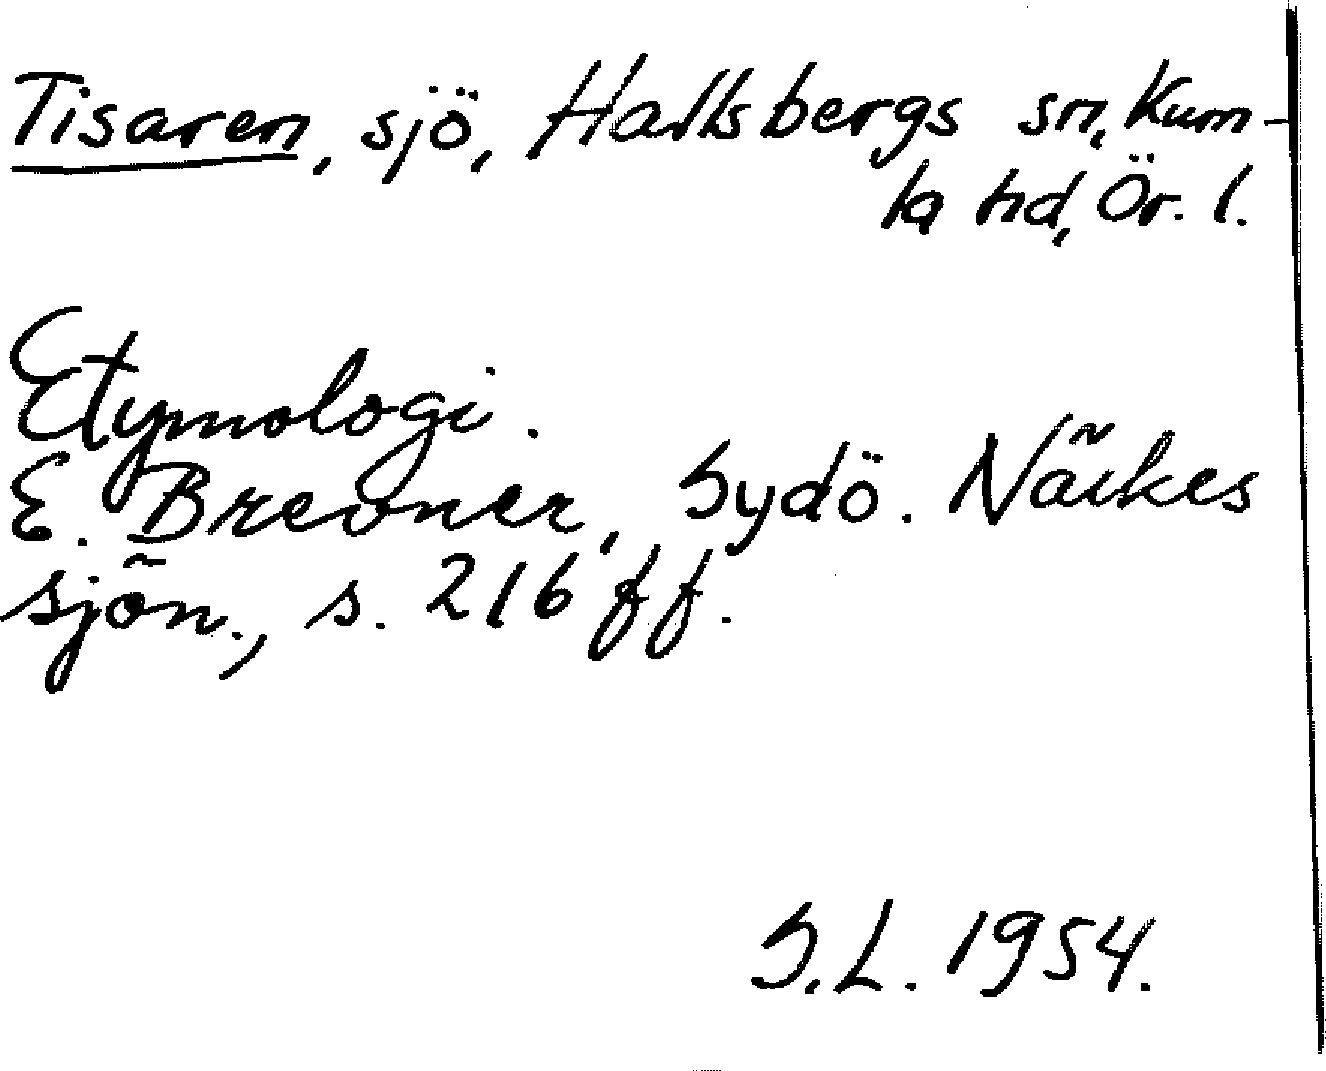 Tisaren, sjö, Hallsbergs sn, Kum-
la hd, Ör. l.
Etymologi.
E. Brevner, Sydö. Närkes
sjön., s. 216 ff.
S.L. 1954.